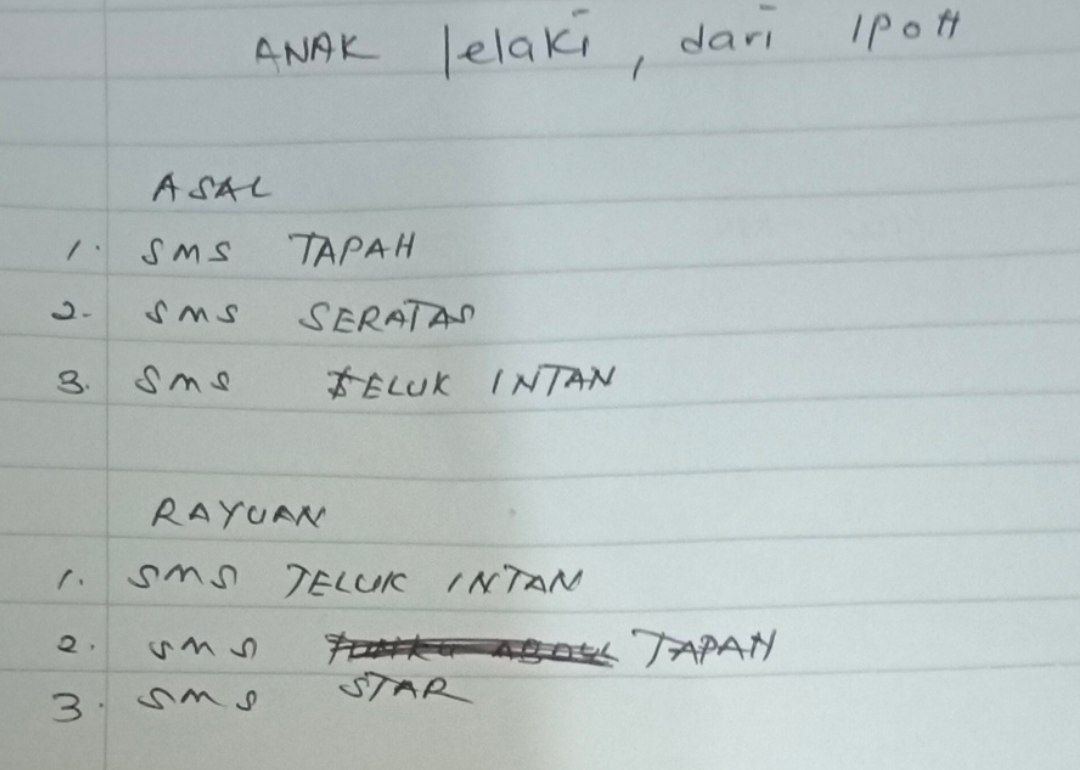 ANAK lelaki, dari IPOH
ASAL
1. SMS TAPAH
2. SMS SERATAS
3. SMS TELUK INTAN
RAYUAN
1. SMS TELUK INTAN
2. SMS TAPAH
3. SMS STAR